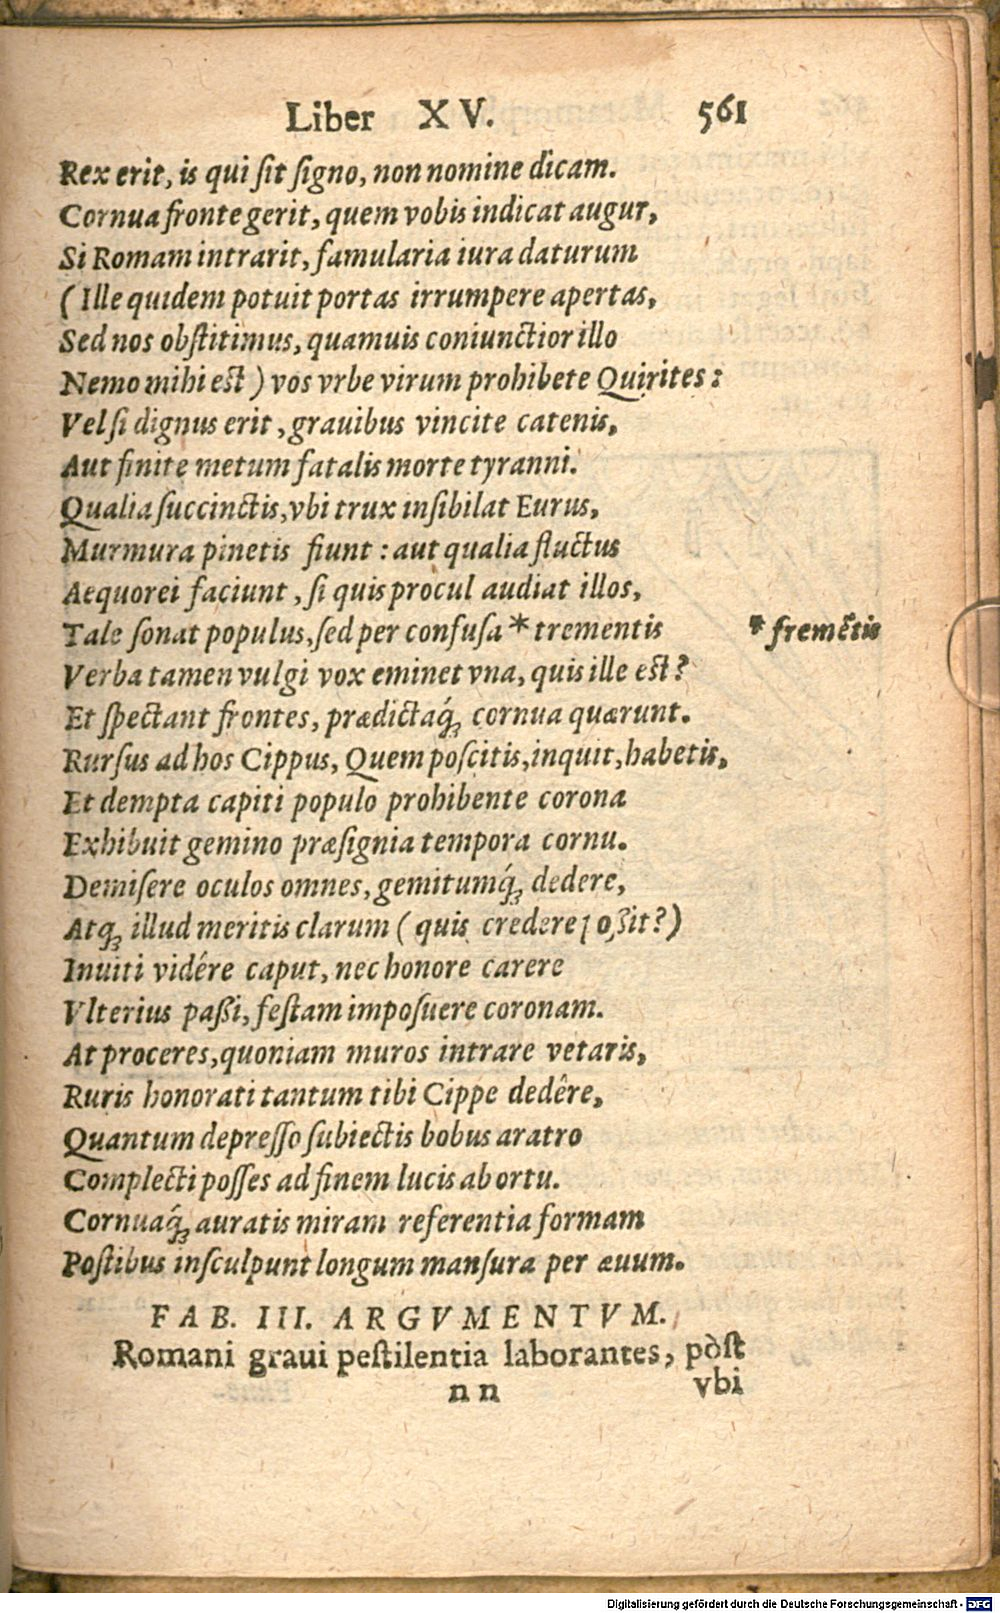 Liber XV. 561
Rex erit, is qui ſit ſigno, non nomine dicam.
Cornua fronte gerit, quem vobis indicat augur,
Si Romam intrarit, famularia iura daturum
(Ille quidem potuit portas irrumpere apertas,
Sed nos obſtitimus, quamuis coniunctior illo
Nemo mihi eſt) vos vrbe virum prohibete Quirites:
Vel ſi dignus erit, grauibus vincite catenis,
Aut finite metum fatalis morte tyranni.
Qualia ſuccinctis, vbi trux inſibilat Eurus,
Murmura pinetis fiunt: aut qualia fluctus
Aequorei faciunt, ſi quis procul audiat illos,
Tale ſonat populus, ſed per confuſa * trementis * fremẽtis
Verba tamen vulgi vox eminet vna, quis ille eſt?
Et ſpectant frontes, prædictaq́; cornua quærunt.
Rurſus ad hos Cippus, Quem poſcitis, inquit, habetis,
Et dempta capiti populo prohibente corona
Exhibuit gemino præſignia tempora cornu.
Demiſere oculos omnes, gemitumq́; dedere,
Atq; illud meritis clarum (quis credere poßit?)
Inuiti vidêre caput, nec honore carere
Vlterius paßi, feſtam impoſuere coronam.
At proceres, quoniam muros intrare vetaris,
Ruris honorati tantum tibi Cippe dedêre,
Quantum depreſſo ſubiectis bobus aratro
Complecti poſſes ad finem lucis ab ortu.
Cornuaq́; auratis miram referentia formam
Poſtibus inſculpunt longum manſura per æuum.
FAB. III. ARGVMENTVM.
Romani graui peſtilentia laborantes, pòſt
nn vbi
Digitalisierung gefördert durch die Deutsche Forschungsgemeinschaft - DFG